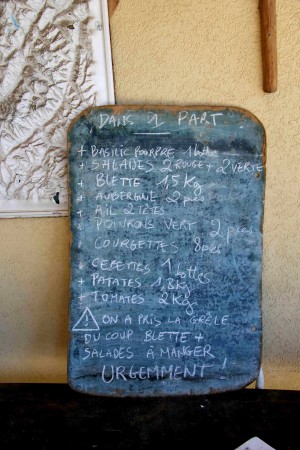 DANS 1 PART
+ BASILIC POURPRE 1 botte
+ SALADES 2 ROUGE + 2 VERTE
+ BLETTE 1,5 Kg
+ AUBERGINE 2 pces
+ AIL 2 TETES
+ POIVRONS VERT 2 pces
+ COURGETTES 8 pces
+ CEBETTES 1 bottes
+ PATATES 1,8 kg
+ TOMATES 2 KG
⚠ ON A PRIS LA GRÊLE
DU COUP BLETTE +
SALADES À MANGER
URGEMMENT !